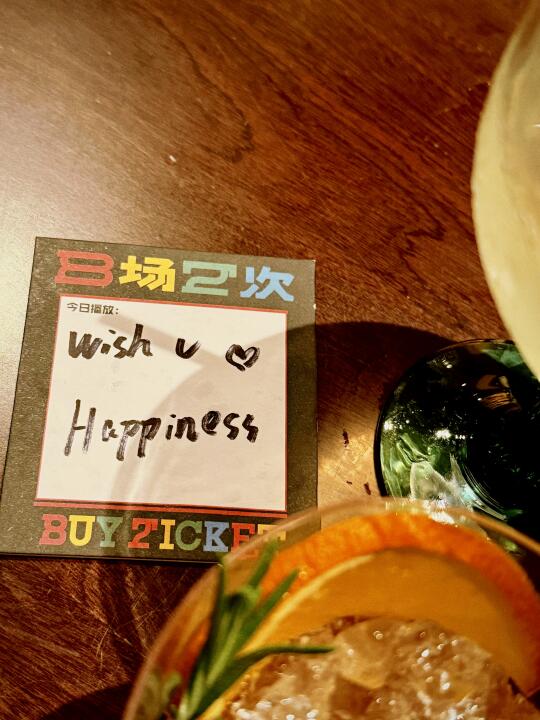 B场2次
今日播放:
Wish u ♡
Happiness
BUY TICKET